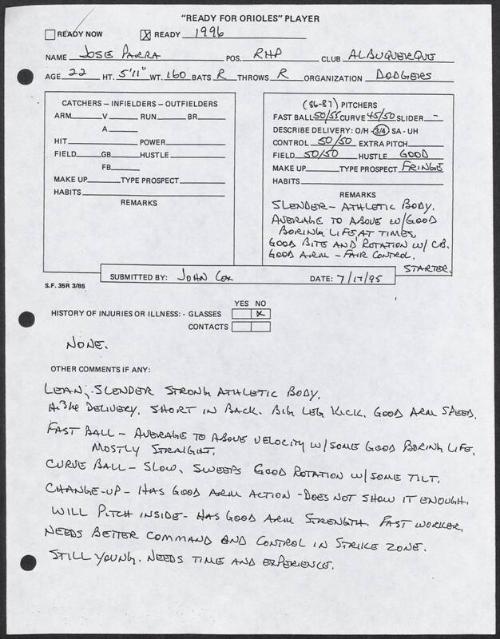 "READY FOR ORIOLES" PLAYER
READY NOW X READY 1996
NAME JOSE PARRA POS. RHP CLUB ALBUQUERQUE
AGE 22 HT. 5'11" WT. 160 BATS R THROWS R ORGANIZATION DODGERS
CATCHERS – INFIELDERS – OUTFIELDERS
ARM V RUN BR
A
HIT POWER
FIELD GB HUSTLE
FB
MAKE UP TYPE PROSPECT
HABITS
REMARKS
(86-87) PITCHERS
FAST BALL 50/55 CURVE 45/50 SLIDER -
DESCRIBE DELIVERY: O/H - 3/4 SA - UH
CONTROL 50/50 EXTRA PITCH
FIELD 50/50 HUSTLE GOOD
MAKE UP TYPE PROSPECT FRINGE
HABITS
REMARKS
SLENDER - ATHLETIC BODY.
AVERAGE TO ABOVE W/GOOD
BORING LIFE AT TIMES
GOOD BITE AND ROTATION W/ C.B.
GOOD ARM - FAIR CONTROL.
STARTER.
SUBMITTED BY: JOHN COX DATE: 7/17/95
S.F. 35R 3/85
YES NO
HISTORY OF INJURIES OR ILLNESS: - GLASSES X
CONTACTS
NONE.
OTHER COMMENTS IF ANY:
LEAN, SLENDER STRONG ATHLETIC BODY.
H. 3/4 DELIVERY. SHORT IN BACK. BIG LEG KICK. GOOD ARM SPEED.
FAST BALL - AVERAGE TO ABOVE VELOCITY W/SOME GOOD BORING LIFE.
MOSTLY STRAIGHT.
CURVE BALL - SLOW, SWEEPS GOOD ROTATION W/SOME TILT.
CHANGE-UP - HAS GOOD ARM ACTION - DOES NOT SHOW IT ENOUGH.
WILL PITCH INSIDE - HAS GOOD ARM STRENGTH. FAST WORKER.
NEEDS BETTER COMMAND AND CONTROL IN STRIKE ZONE.
STILL YOUNG. NEEDS TIME AND EXPERIENCE.